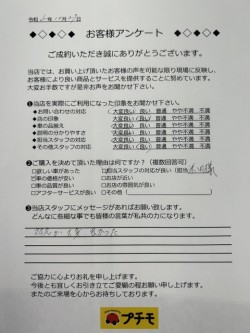 令和 年 月 日
◆◇◆◇ お客様アンケート ◆◇◆◇
ご成約いただき誠にありがとうございます。
当店では、お買い上げ頂いたお客様の声を可能な限り現場に反映し、
お客様により良い商品とサービスを提供することに努めています。
大変お手数ですが是非お声をお聞かせ下さい。
❶当店を実際にご利用になった印象をお聞かせ下さい。
◆お問い合わせの対応 大変良い 良い 普通 やや不満 不満
◆店の印象 大変良い 良い 普通 やや不満 不満
◆車の品揃え 大変良い 良い 普通 やや不満 不満
◆説明の分かりやすさ 大変良い 良い 普通 やや不満 不満
◆担当スタッフの対応 大変良い 良い 普通 やや不満 不満
◆その他スタッフの対応 大変良い 良い 普通 やや不満 不満
❷ご購入を決めて頂いた理由は何ですか?(複数回答可)
□欲しい車があった □担当スタッフの対応が良い(担当 様)
□車の価格が安い □お店が近い
□車の品質が良い □お店の雰囲気が良い
□アフターサービスが良い □その他( )
❸担当スタッフにメッセージがあればお願い致します。
どんなに些細な事でも皆様の言葉が私共の力になります。
良かった
ご協力に心よりお礼を申し上げます。
今後とも宜しくお引き立てご愛顧の程お願い申し上げます。
またのご来場を心からお待ちしております。
プチモ